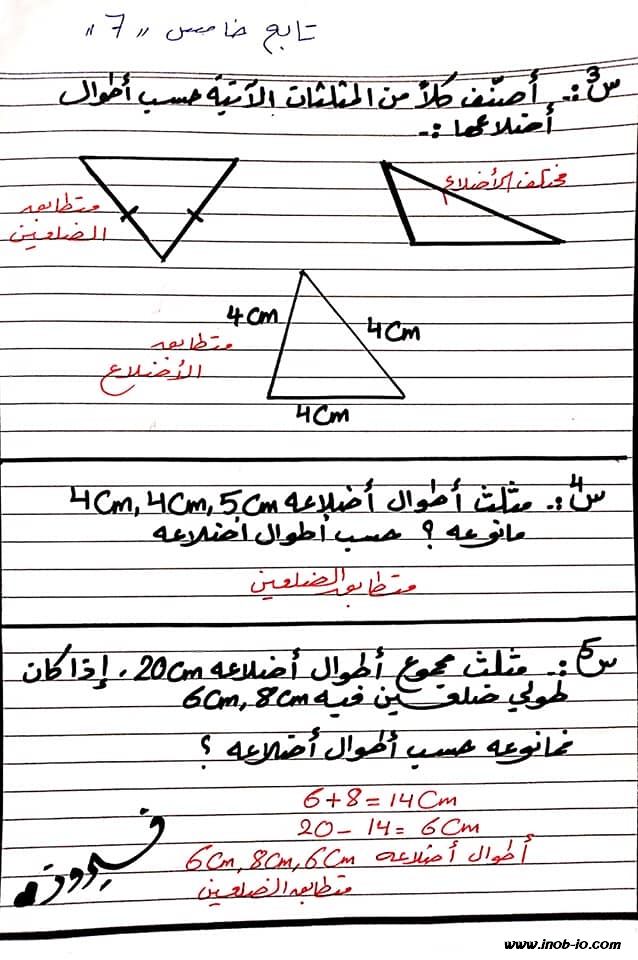 تابع خامس "7"
س3:- أصنّف كلاً من المثلثات الآتية حسب أطوال
أضلاعها:-
مختلف الأضلاع
متطابق
الضلعين
4Cm
4Cm
متطابق
الأضلاع
4Cm
س4:- مثلث أطوال أضلاعه 4Cm, 4Cm, 5Cm
مانوعه ؟ حسب أطوال أضلاعه
متطابق الضلعين
س5:- مثلث مجموع أطوال أضلاعه 20Cm، إذا كان
طولي ضلعين فيه 6Cm, 8Cm
فمانوعه حسب أطوال أضلاعه ؟
6+8=14Cm
20-14=6Cm
أطوال أضلاعه 6Cm, 8Cm, 6Cm
متطابق الضلعين
www.inob-io.com